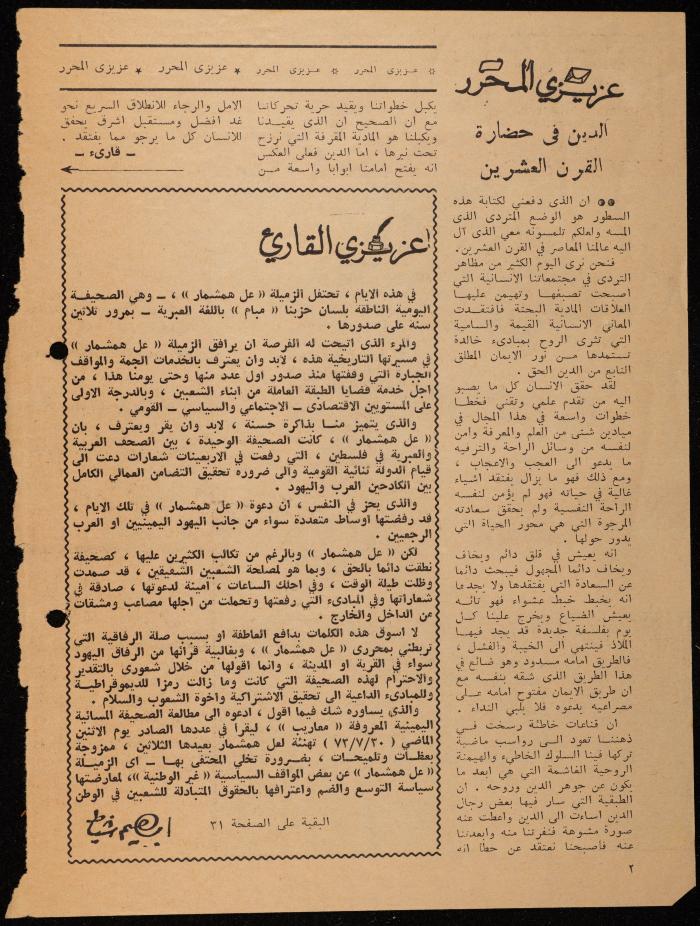 عزيزي المحرر
الدين في حضارة
القرن العشرين
ان الذى دفعني لكتابة هذه
السطور هو الوضع المتردى الذى
المسه ولعلكم تلمسونه معي الذى آل
اليه عالمنا المعاصر في القرن العشرين .
فنحن نرى اليوم الكثير من مظاهر
التردى في مجتمعاتنا الانسانية التي
اصبحت تصبغها وتهيمن عليها
العلاقات المادية البحتة فافتقدت
المعاني الانسانية القيمة والسامية
التي تثرى الروح بمبادىء خالدة
تستمدها من نور الايمان المطلق
النابع من الدين الحق .
لقد حقق الانسان كل ما يصبو
اليه من تقدم علمي وتقني فخطا
خطوات واسعة في هذا المجال في
ميادين شتى من العلم والمعرفة وامن
لنفسه من وسائل الراحة والترفيه
ما يدعو الى العجب والاعجاب ،
ومع ذلك فهو ما يزال يفتقد اشياء
غالية في حياته فهو لم يؤمن لنفسه
الراحة النفسية ولم يحقق سعادته
المرجوة التي هي محور الحياة التي
يدور حولها .
انه يعيش في قلق دائم ويخاف
ويخاف دائما المجهول فيبحث دائما
عن السعادة التي يفتقدها ولا يجدها
انه يخبط خبط عشواء فهو تائه
يعيش الضياع ويخرج علينا كل
يوم بفلسفة جديدة قد يجد فيها
الملاذ فينتهي الى الخيبة والفشل ،
فالطريق امامه مسدود وهو ضائع في
هذا الطريق الذى شقه بنفسه مع
ان طريق الايمان مفتوح امامه على
مصراعيه يدعوه فلا يلبي النداء .
ان قناعات خاطئة رسخت في
ذهننا تعود الى رواسب ماضية
تركها فينا السلوك الخاطىء والهيمنة
الروحية الغاشمة التي هي ابعد ما
يكون عن جوهر الدين وروحه . ان
الطبقية التي سار فيها بعض رجال
الدين اساءت الى الدين واعطت عنه
صورة مشوهة فنفرتنا منه وابعدتنا
عنه فاصبحنا نعتقد عن خطا انه
* عزيزى المحرر * عزيزى المحرر * عزيزى المحرر * عزيزى المحرر
يكبل خطواتنا ويقيد حرية تحركاتنا
مع ان الصحيح ان الذى يقيدنا
ويكبلنا هو المادية المقرفة التي نرزح
تحت نيرها ، اما الدين فعلى العكس
انه يفتح امامنا ابوابا واسعة من
الامل والرجاء للانطلاق السريع نحو
غد افضل ومستقبل اشرق يحقق
للانسان كل ما يرجو مما يفتقد .
ــ قارىء ــ
عزيزي القارئ
في هذه الايام ، تحتفل الزميلة (( عل همشمار )) ، ــ وهي الصحيفة
اليومية الناطقة بلسان حزبنا (( مبام )) باللغة العبرية ــ بمرور ثلاثين
سنة على صدورها .
والمرء الذى اتيحت له الفرصة ان يرافق الزميلة (( عل همشمار ))
في مسيرتها التاريخية هذه ، لابد وان يعترف بالخدمات الجمة والمواقف
الجبارة التي وقفتها منذ صدور اول عدد منها وحتى يومنا هذا ، من
اجل خدمة قضايا الطبقة العاملة من ابناء الشعبين ، وبالدرجة الاولى
على المستويين الاقتصادى ــ الاجتماعي والسياسي ــ القومي .
والذى يتميز منا بذاكرة حسنة ، لابد وان يقر ويعترف ، بان
(( عل همشمار )) ، كانت الصحيفة الوحيدة ، بين الصحف العربية
والعبرية في فلسطين ، التي رفعت في الاربعينات شعارات دعت الى
قيام الدولة ثنائية القومية والى ضروره تحقيق التضامن العمالي الكامل
بين الكادحين العرب واليهود .
والذى يحز في النفس ، ان دعوة (( عل همشمار )) في تلك الايام ،
قد رفضتها اوساط متعددة سواء من جانب اليهود اليمينيين او العرب
الرجعيين .
لكن (( عل همشمار )) وبالرغم من تكالب الكثيرين عليها ، كصحيفة
نطقت دائما بالحق ، وبما هو لمصلحة الشعبين الشقيقين ، قد صمدت
وظلت طيلة الوقت ، وفي احلك الساعات ، امينة لدعوتها ، صادقة في
شعاراتها وفي المبادىء التي رفعتها وتحملت من اجلها مصاعب ومشقات
من الداخل والخارج .
لا اسوق هذه الكلمات بدافع العاطفة او بسبب صلة الرفاقية التي
تربطني بمحررى (( عل همشمار )) ، وبغالبية قرائها من الرفاق اليهود
سواء في القرية او المدينة ، وانما اقولها من خلال شعورى بالتقدير
والاحترام لهذه الصحيفة التي كانت وما زالت رمزا للديموقراطية
وللمبادىء الداعية الى تحقيق الاشتراكية واخوة الشعوب والسلام .
والذي يساوره شك فيما اقول ، ادعوه الى مطالعة الصحيفة المسائية
اليمينية المعروفة (( معاريب )) ، ليقرأ في عددها الصادر يوم الاثنين
الماضي ( ٧٣/٧/٣٠ ) تهنئة لعل همشمار بعيدها الثلاثين ، ممزوجة
بعظات وتلميحات ، بضرورة تخلي المحتفى بها ــ اى الزميلة
(( عل همشمار )) عن بعض المواقف السياسية (( غير الوطنية )) ، لمعارضتها
سياسة التوسع والضم واعترافها بالحقوق المتبادلة للشعبين في الوطن
البقية على الصفحة ٣١
ابراهيم شباط
٢